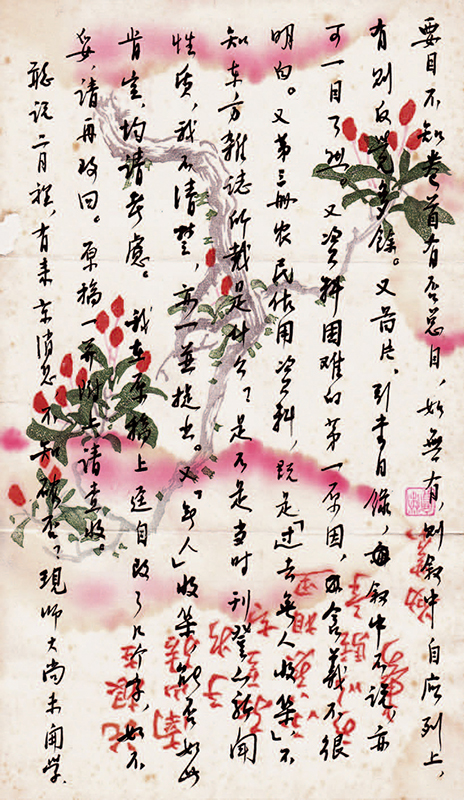 要目不知卷首有否总目，如无有，则叙中自应列上，
有则反觉多馀。又葯片、引书目录，叙中不说，亦
可一目了然。又资料困难的第一原因，含义不很
明白。又第三册农民作用资料，既是「过去无人收集」，不
知东方雜誌所载是什么？是不是当时刊登之新闻
性质，我不清楚，亦一并提出。又「无人」收集，能否如此
肯定，均请考慮。我在原稿上迳自改了几个字，如不
妥，请再改回。原稿一并附上请查收。
聽说二月程，有来京消息，不知确否？现师大尚未開学。